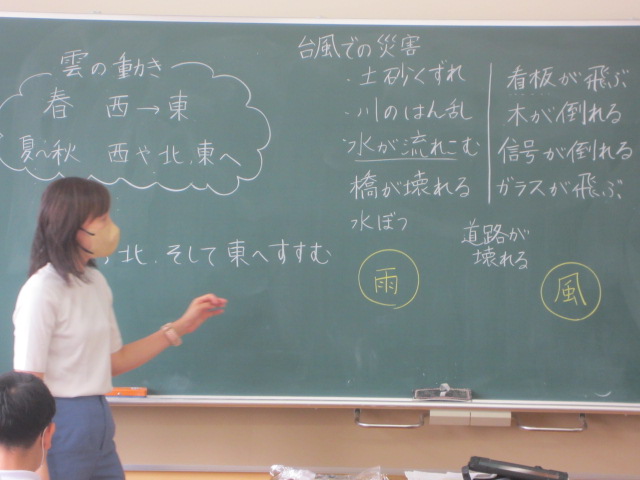 雲の動き
春 西→東
夏〜秋 西や北、東へ
北、そして東へすすむ
台風での災害
・土砂くずれ
・川のはん乱
水が流れこむ
橋が壊れる
水ぼつ
雨
看板が飛ぶ
木が倒れる
信号が倒れる
ガラスが飛ぶ
道路が
壊れる
風